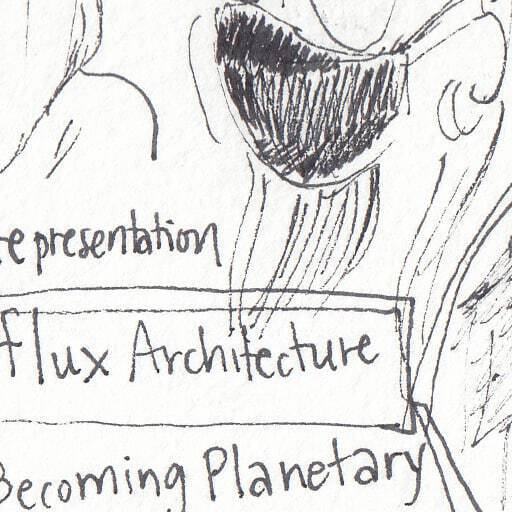 representation
flux Architecture
Becoming Planetary